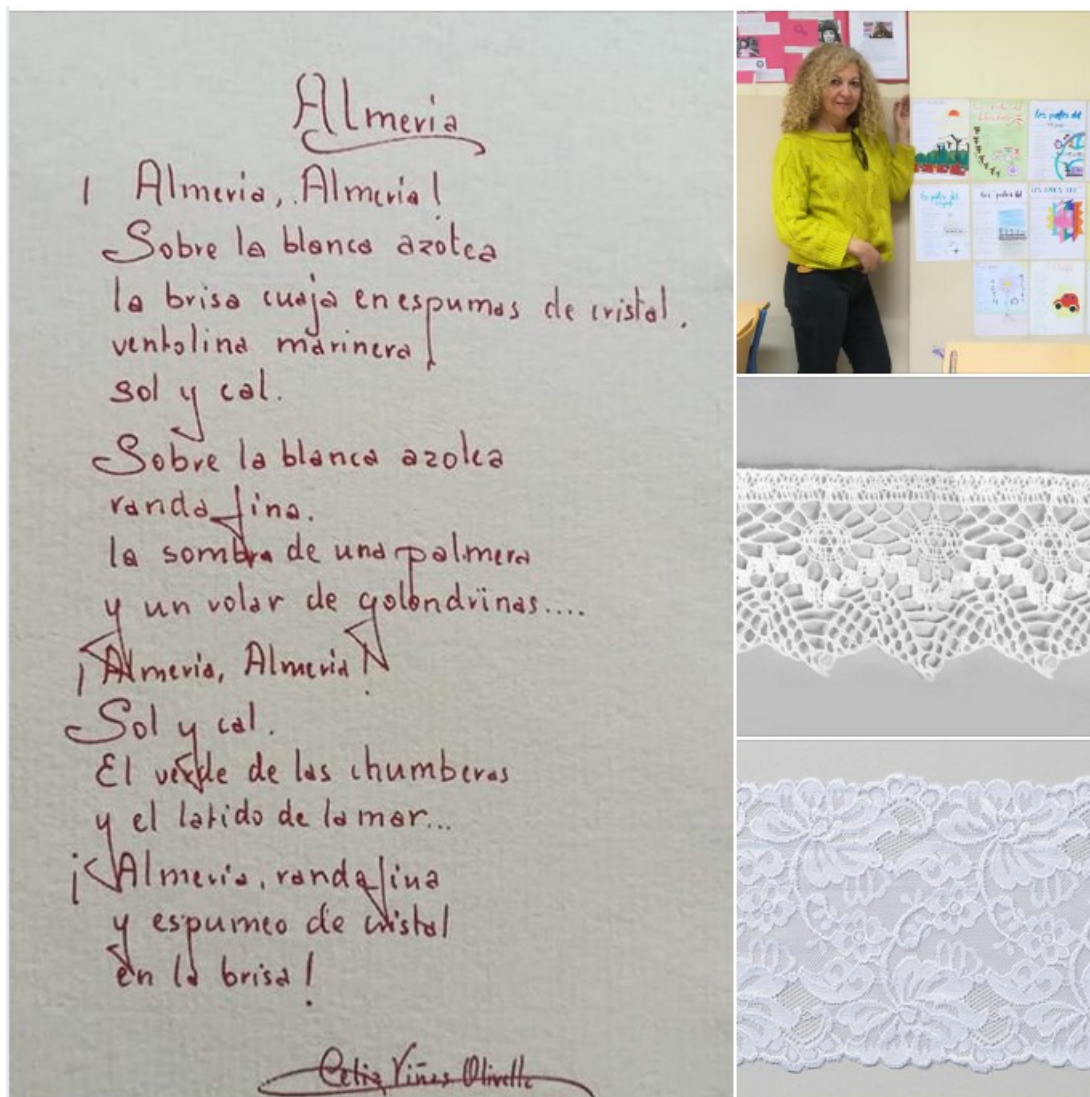 Almeria
¡ Almeria, Almeria!
Sobre la blanca azotea
la brisa cuaja en espumas de cristal,
ventolina marinera
sol y cal.
Sobre la blanca azotea
randa fina.
la sombra de una palmera
y un volar de golondrinas....
¡Almeria, Almeria!
Sol y cal.
El verde de las chumberas
y el latido de la mar...
¡Almeria, randa fina
y espumeo de cristal
en la brisa!
Celia Viñas Olivella